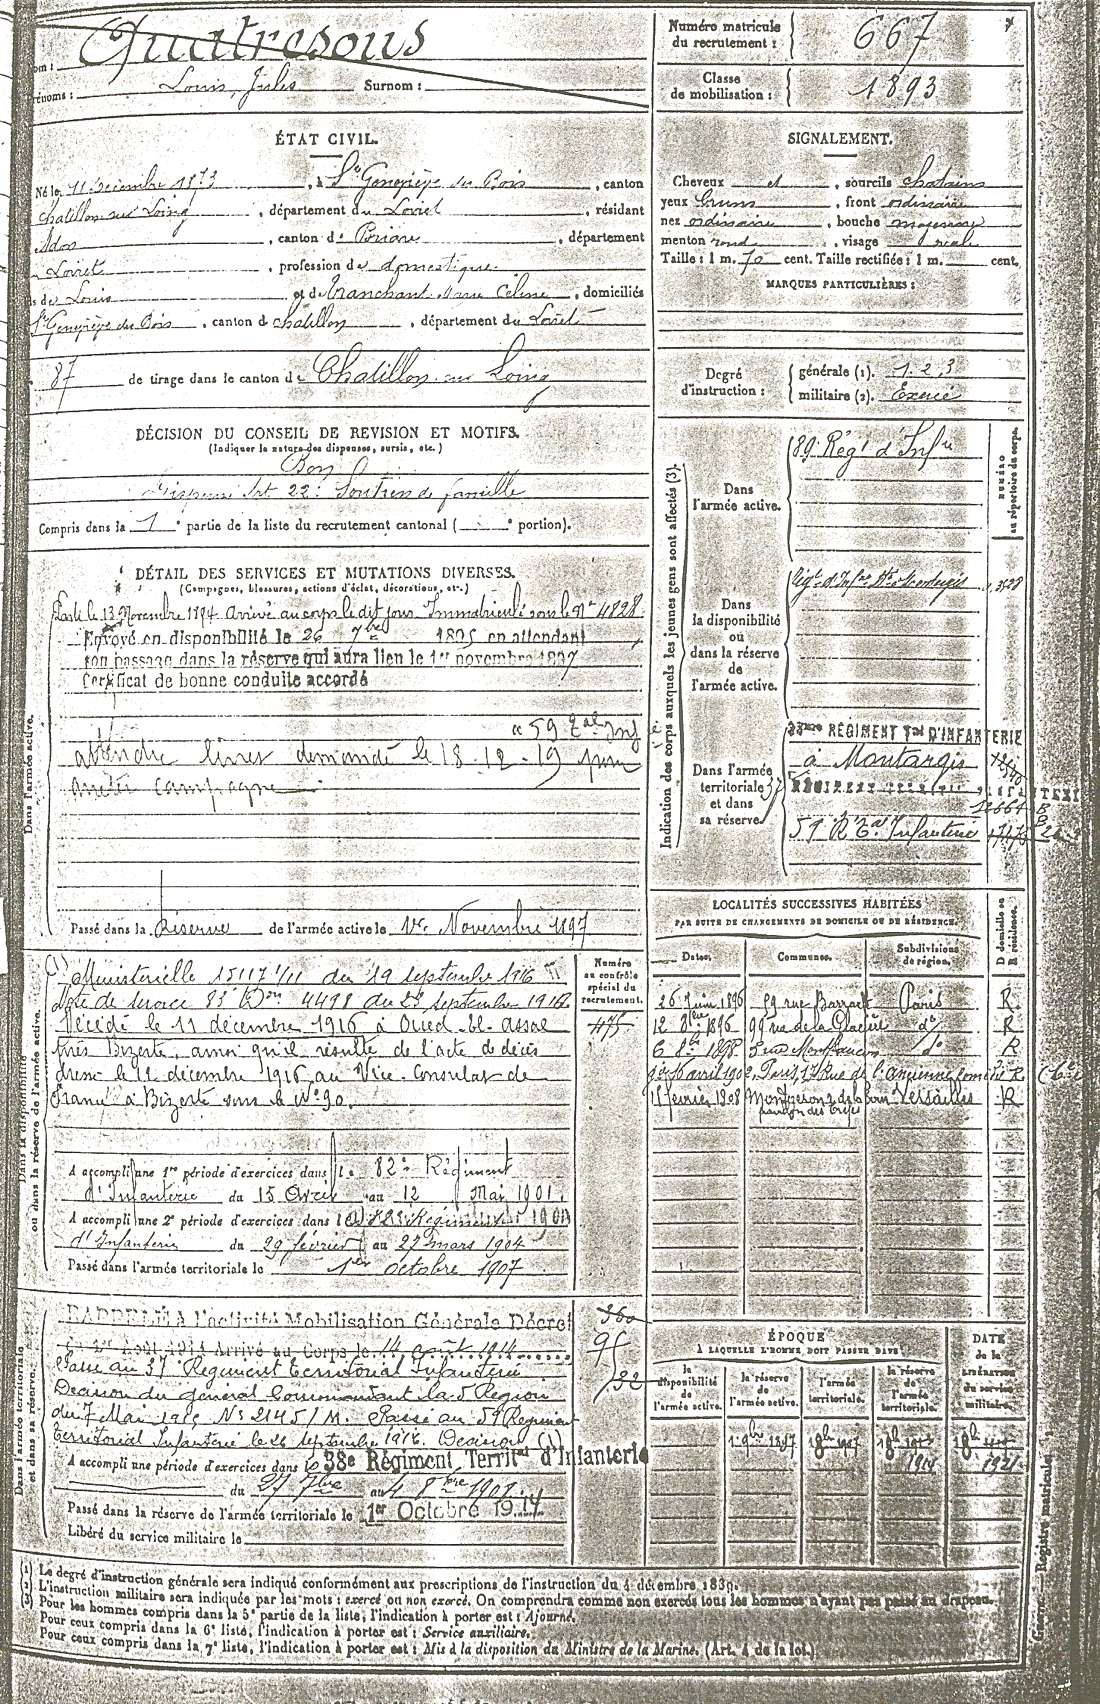 Quatresous
Numéro matricule du recrutement : 667
Louis, Jules Surnom :
Classe de mobilisation : 1893
ÉTAT CIVIL.
Né le 11 Décembre 1873, à Ste Geneviève des Bois, canton
Chatillon sur Loing, département du Loiret, résidant
Adon, canton de Briare, département
Loiret, profession de domestique
de Louis et de Tranchant, Marie Celine, domiciliés
Ste Geneviève des Bois, canton d Châtillon, département du Loiret
87 de tirage dans le canton de Chatillon sur Loing
SIGNALEMENT.
Cheveux et, sourcils chatains
yeux bruns, front ordinaire
nez ordinaire, bouche moyenne
menton rond, visage
Taille : 1 m. 70 cent. Taille rectifiée : 1 m. cent.
MARQUES PARTICULIÈRES :
Degré d'instruction :
générale (1). 1.2.3
militaire (2). Exercé
DÉCISION DU CONSEIL DE REVISION ET MOTIFS.
(Indiquer la nature des dispenses, sursis, etc.)
Bon
Dispensé Art 22. Soutien de famille
Compris dans la 1e partie de la liste du recrutement cantonal ( e portion).
DÉTAIL DES SERVICES ET MUTATIONS DIVERSES.
(Campagnes, blessures, actions d'éclat, décorations, etc.)
le 13 Novembre 1894 Arrivé au corps le dit jour Immatriculé sous le No 4828
Envoyé en disponibilité le 26 7bre 1895 en attendant
son passage dans la réserve qui aura lieu le 1er novembre 1897
Certificat de bonne conduite accordé
59 tal Inf
livret demandé le 18-12-19 pour
campagne
Dans l'armée active.
Passé dans la Réserve de l'armée active le 1er Novembre 1897
Indication des corps auxquels les jeunes gens sont affectés (3).
NUMÉRO au répertoire du corps.
Dans l'armée active.
89 Régt d'Infie
Dans la disponibilité ou dans la réserve de l'armée active.
Régt d'Infie de Montargis
Dans l'armée territoriale et dans sa réserve.
REGIMENT Tal D'INFANTERIE
à Montargis
37
59 R. Tal Infanterie
LOCALITÉS SUCCESSIVES HABITÉES
PAR SUITE DE CHANGEMENTS DE DOMICILE OU DE RÉSIDENCE.
Dates. Communes. Subdivisions de région. D domicile ou R résidence.
26 Juin 1896 59 rue Barrault Paris R
12 8bre 1896 99 rue de la Glacière do R
6 8bre 1898 5 rue Montfaucon do R
avril 190 Paris, Rue de l'ancienne comédie R
15 février 1908 Montgeron Versailles R
Dans la disponibilité ou dans la réserve de l'armée active.
Numéro au contrôle spécial du recrutement.
475
(1) Ministerielle 15117 1/11 du 19 septembre 1916
Note de service 4498 du septembre 1916
Décédé le 11 décembre 1916 à Oued-el-Assal
près Bizerte, ainsi qu'il résulte de l'acte de décès
dressé le 12 décembre 1916 au Vice-Consulat de
France à Bizerte sous le No 90.
A accompli une 1re période d'exercices dans le 82e Régiment
d'Infanterie du 15 Avril au 12 Mai 1901.
A accompli une 2e période d'exercices dans le 82e Régiment
d'Infanterie du 29 février au 27 mars 1904
Passé dans l'armée territoriale le 1er octobre 1907
Dans l'armée territoriale et dans sa réserve.
RAPPELÉ A l'activité Mobilisation Générale Décret
du 1er Août 1914 Arrivé au Corps le 14 août 1914
Passé au 37 Régiment Territorial Infanterie
Decision du général Commandant la 5e Région
du 7 Mai 191 No 2145/M. Passé au 59 Régiment
Territorial Infanterie le 26 septembre 1916. Decision (1)
A accompli une période d'exercices dans le 38e Régiment Territal d'Infanterie
du 27 7bre au 4 8bre 1908
Passé dans la réserve de l'armée territoriale le 1er Octobre 1914
Libéré du service militaire le
360
95
ÉPOQUE
A LAQUELLE L'HOMME DOIT PASSER DANS
la disponibilité de l'armée active.
la réserve de l'armée active.
l'armée territoriale.
la réserve de l'armée territoriale.
DATE de la LIBÉRATION du service militaire.
1 9bre 1897
1914
1921
(1) Le degré d'instruction générale sera indiqué conformément aux prescriptions de l'instruction du 4 décembre 1889.
(2) L'instruction militaire sera indiquée par les mots : exercé ou non exercé. On comprendra comme non exercés tous les hommes n'ayant pas passé au drapeau.
(3) Pour les hommes compris dans la 5e partie de la liste, l'indication à porter est : Ajourné.
Pour ceux compris dans la 6e liste, l'indication à porter est : Service auxiliaire.
Pour ceux compris dans la 7e liste, l'indication à porter est : Mis à la disposition du Ministre de la Marine. (Art. 4 de la loi.)
Registre matricule.